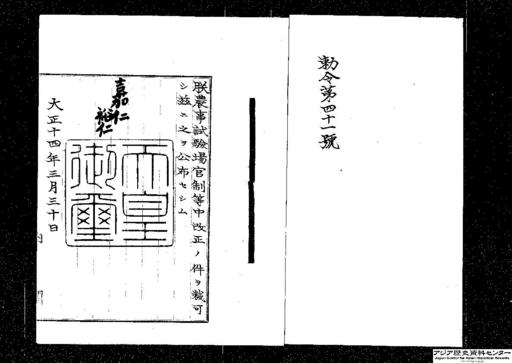 勅令第四十一號
朕農事試驗場官制等中改正ノ件ヲ裁可
シ茲ニ之ヲ公布セシム
嘉仁
裕仁
天皇御璽
大正十四年三月三十日
アジア歴史資料センター
Japan Center for Asian Historical Records